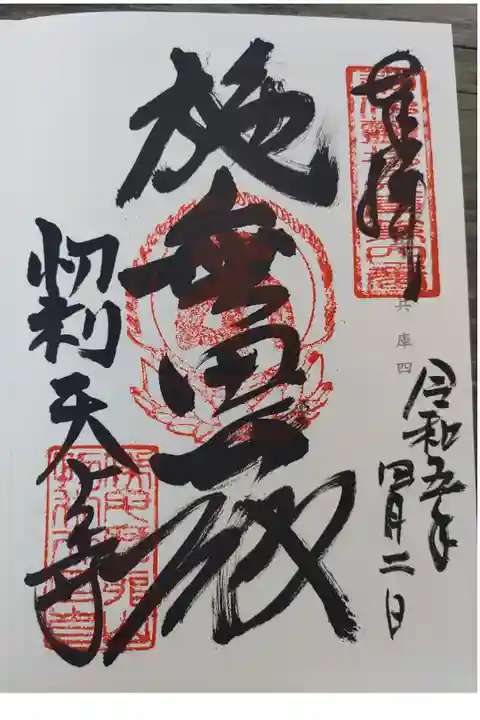 奉拝
兵庫四
令和五年
四月二日
施無畏殿
忉利天上寺